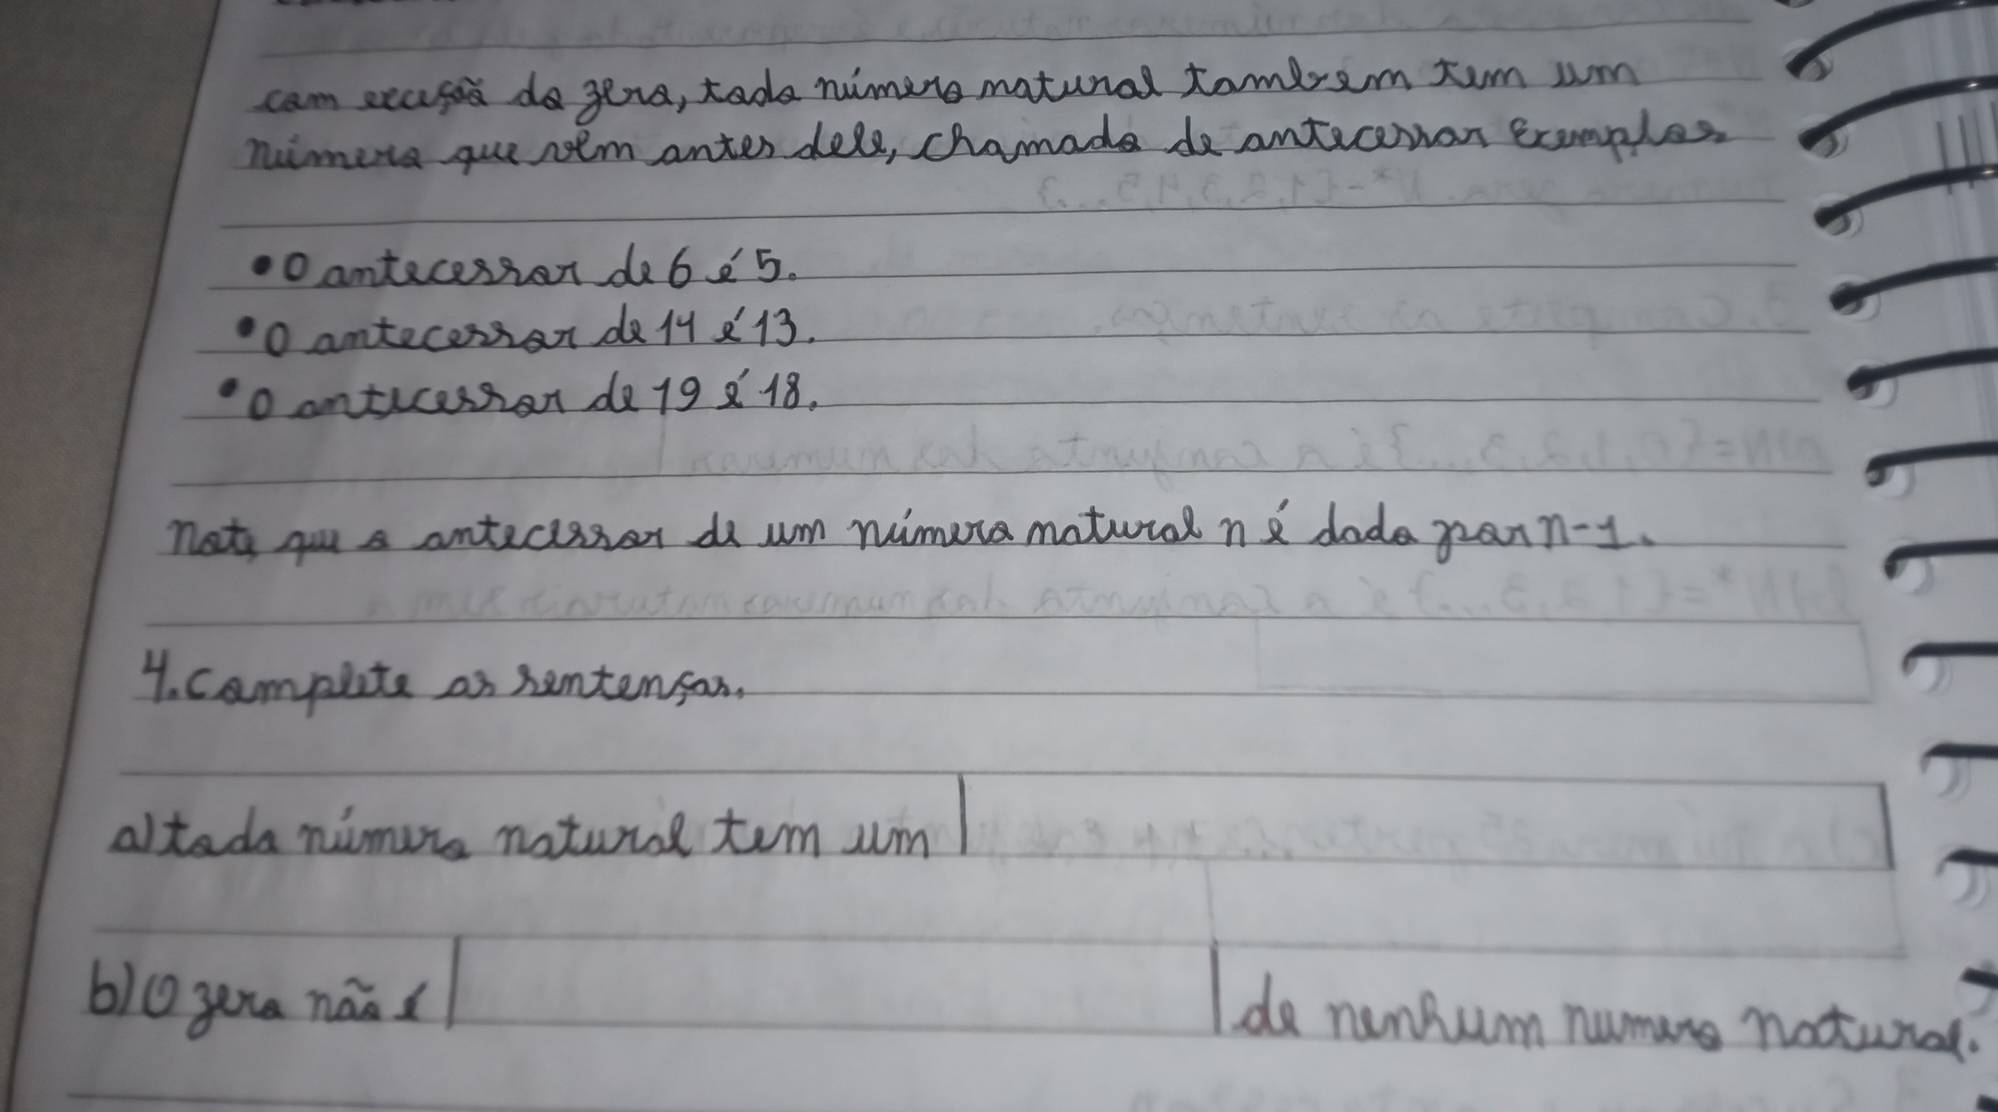 com exceção do zero, todo número natural tambem tem um
número que vem antes dele, chamado de antecessor Exemplos
• O antecessor de 6 é 5.
• O antecessor de 14 é 13.
• O antecessor de 19 é 18.
note que o antecessor de um número natural n é dado por n-1.
4. complete as sentenças.
a) todo número natural tem um
b) O zero não é de nenhum numero natural.